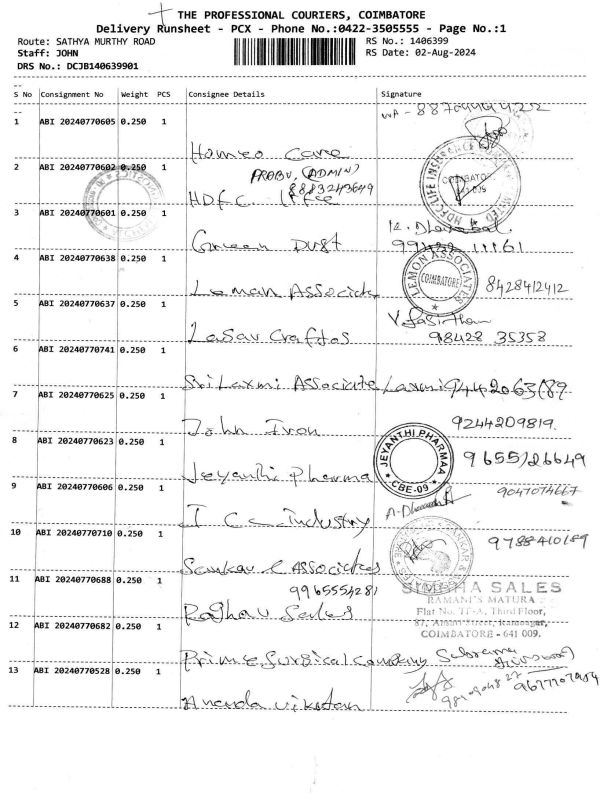 THE PROFESSIONAL COURIERS, COIMBATORE
Delivery Runsheet - PCX - Phone No.:0422-3505555 - Page No.:1
Route: SATHYA MURTHY ROAD
RS No.: 1406399
Staff: JOHN
RS Date: 02-Aug-2024
DRS No.: DCJB140639901
S No Consignment No Weight PCS Consignee Details Signature
1 ABI 20240770605 0.250 1
Homeo Care
2 ABI 20240770602 0.250 1
PRABU, (ADMIN)
8883243649
HDFC Life
HDFC LIFE INSURANCE
3 ABI 20240770601 0.250 1
Green Dust
4 ABI 20240770638 0.250 1
Leman Associate
LEMON ASSOCIATES
COIMBATORE
8428412412
5 ABI 20240770637 0.250 1
Lasav Craftos
98428 35358
6 ABI 20240770741 0.250 1
Sri Laxmi Associate Laxmi 9442063189
7 ABI 20240770625 0.250 1
John Iron
9244209819.
8 ABI 20240770623 0.250 1
Jeyanthi pharma
JEYANTHI PHARMAA
CBE-09
9655126649
9 ABI 20240770606 0.250 1
9047074667
Industry
10 ABI 20240770710 0.250 1
Sankar & Associates
9788410189
11 ABI 20240770688 0.250 1
9965554281
Raghav Sales
SIMBHA SALES
RAMANI'S MATURA
Flat No. TF-A, Third Floor,
87, Street, Ramnagar,
COIMBATORE - 641 009.
12 ABI 20240770682 0.250 1
Prime Surgical company
13 ABI 20240770528 0.250 1
Ananda vikatan